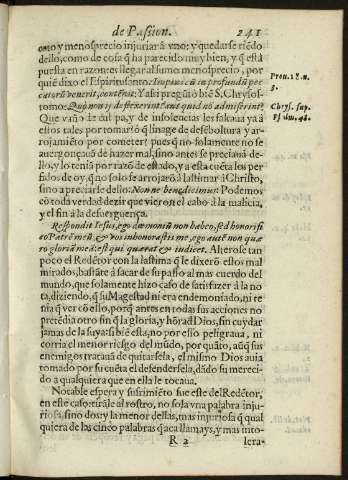 de Passion. 241
onto y menosprecio injuriar à vno; y quedarse riẽdo
dello, como de cosa q̃ ha parecido muy bien, y q̃ està
puesta en razon: es llegar al sumo menosprecio, por
quiẽ dixo el Espiritu santo. Impius cũ in profundũ pec
catorũ venerit, contẽnit. Y assi pregũtò biẽ S. Chrysos-
tomo: Quo non ij descixerint? aut quid nõ admiserint?
Que vaño de culpa, y de insolencias les faltaua ya à
estos tales por tomar? ò q̃ linage de desẽboltura y ar-
rojamiẽto por cometer? pues q̃ no solamente no se
auergonçauã de hazer mal, sino antes se preciauã de-
llo, y lo tenia por razõ de estado, y a esta cuẽta los per
fidos de oy, q̃ no solo se arrojarõ à lastimar à Christo,
sino a preciarse dello: Non ne bene dicimus? Podemos
cõ toda verdad dezir que vieron el cabo à la malicia,
y el fin à la desuerguença.
Respondit Iesus, ego dæmoniũ non habeo, sed honorifi
co Patrẽ meũ, & vos inhonorastis me, ego autẽ non quæ
ro gloriã meã: est qui quærat & iudicet. Alterose tan
poco el Redẽtor con la lastima q̃ le dixerõ estos mal
mirados; bastãte à sacar de su passo al mas cuerdo del
mundo, que solamente hizo caso de satisfazer à la no
ta, diziendo, q̃ su Magestad ni era endemoniado, ni te
nia q̃ ver cõ ello, porq̃ antes en todas sus acciones no
pretẽdia otro fin q̃ la gloria, y hõra d̃ Dios, sin cuydar
jamas de la suya: si biẽ esta, no por esso peligraua, ni
corria el menor riesgo del mũdo, por quãto, aũq̃ sus
enemigos tratauã de quitarsela, el mismo Dios auia
tomado por su cuẽta el defendersela, dãdo su mereci-
do a qualquiera que en ella le tocaua.
Notable espera y sufrimiẽto fue este del Redẽtor,
en este caso: tirãle al rostro, no sola vna palabra inju-
riosa, sino dos: y la menor dellas, mas injuriosa q̃ qual
quiera de las cinco palabras q̃ aca llamays, y mas into-
R 2 lera-
Prou. 18. n.
3.
Chrys. sup.